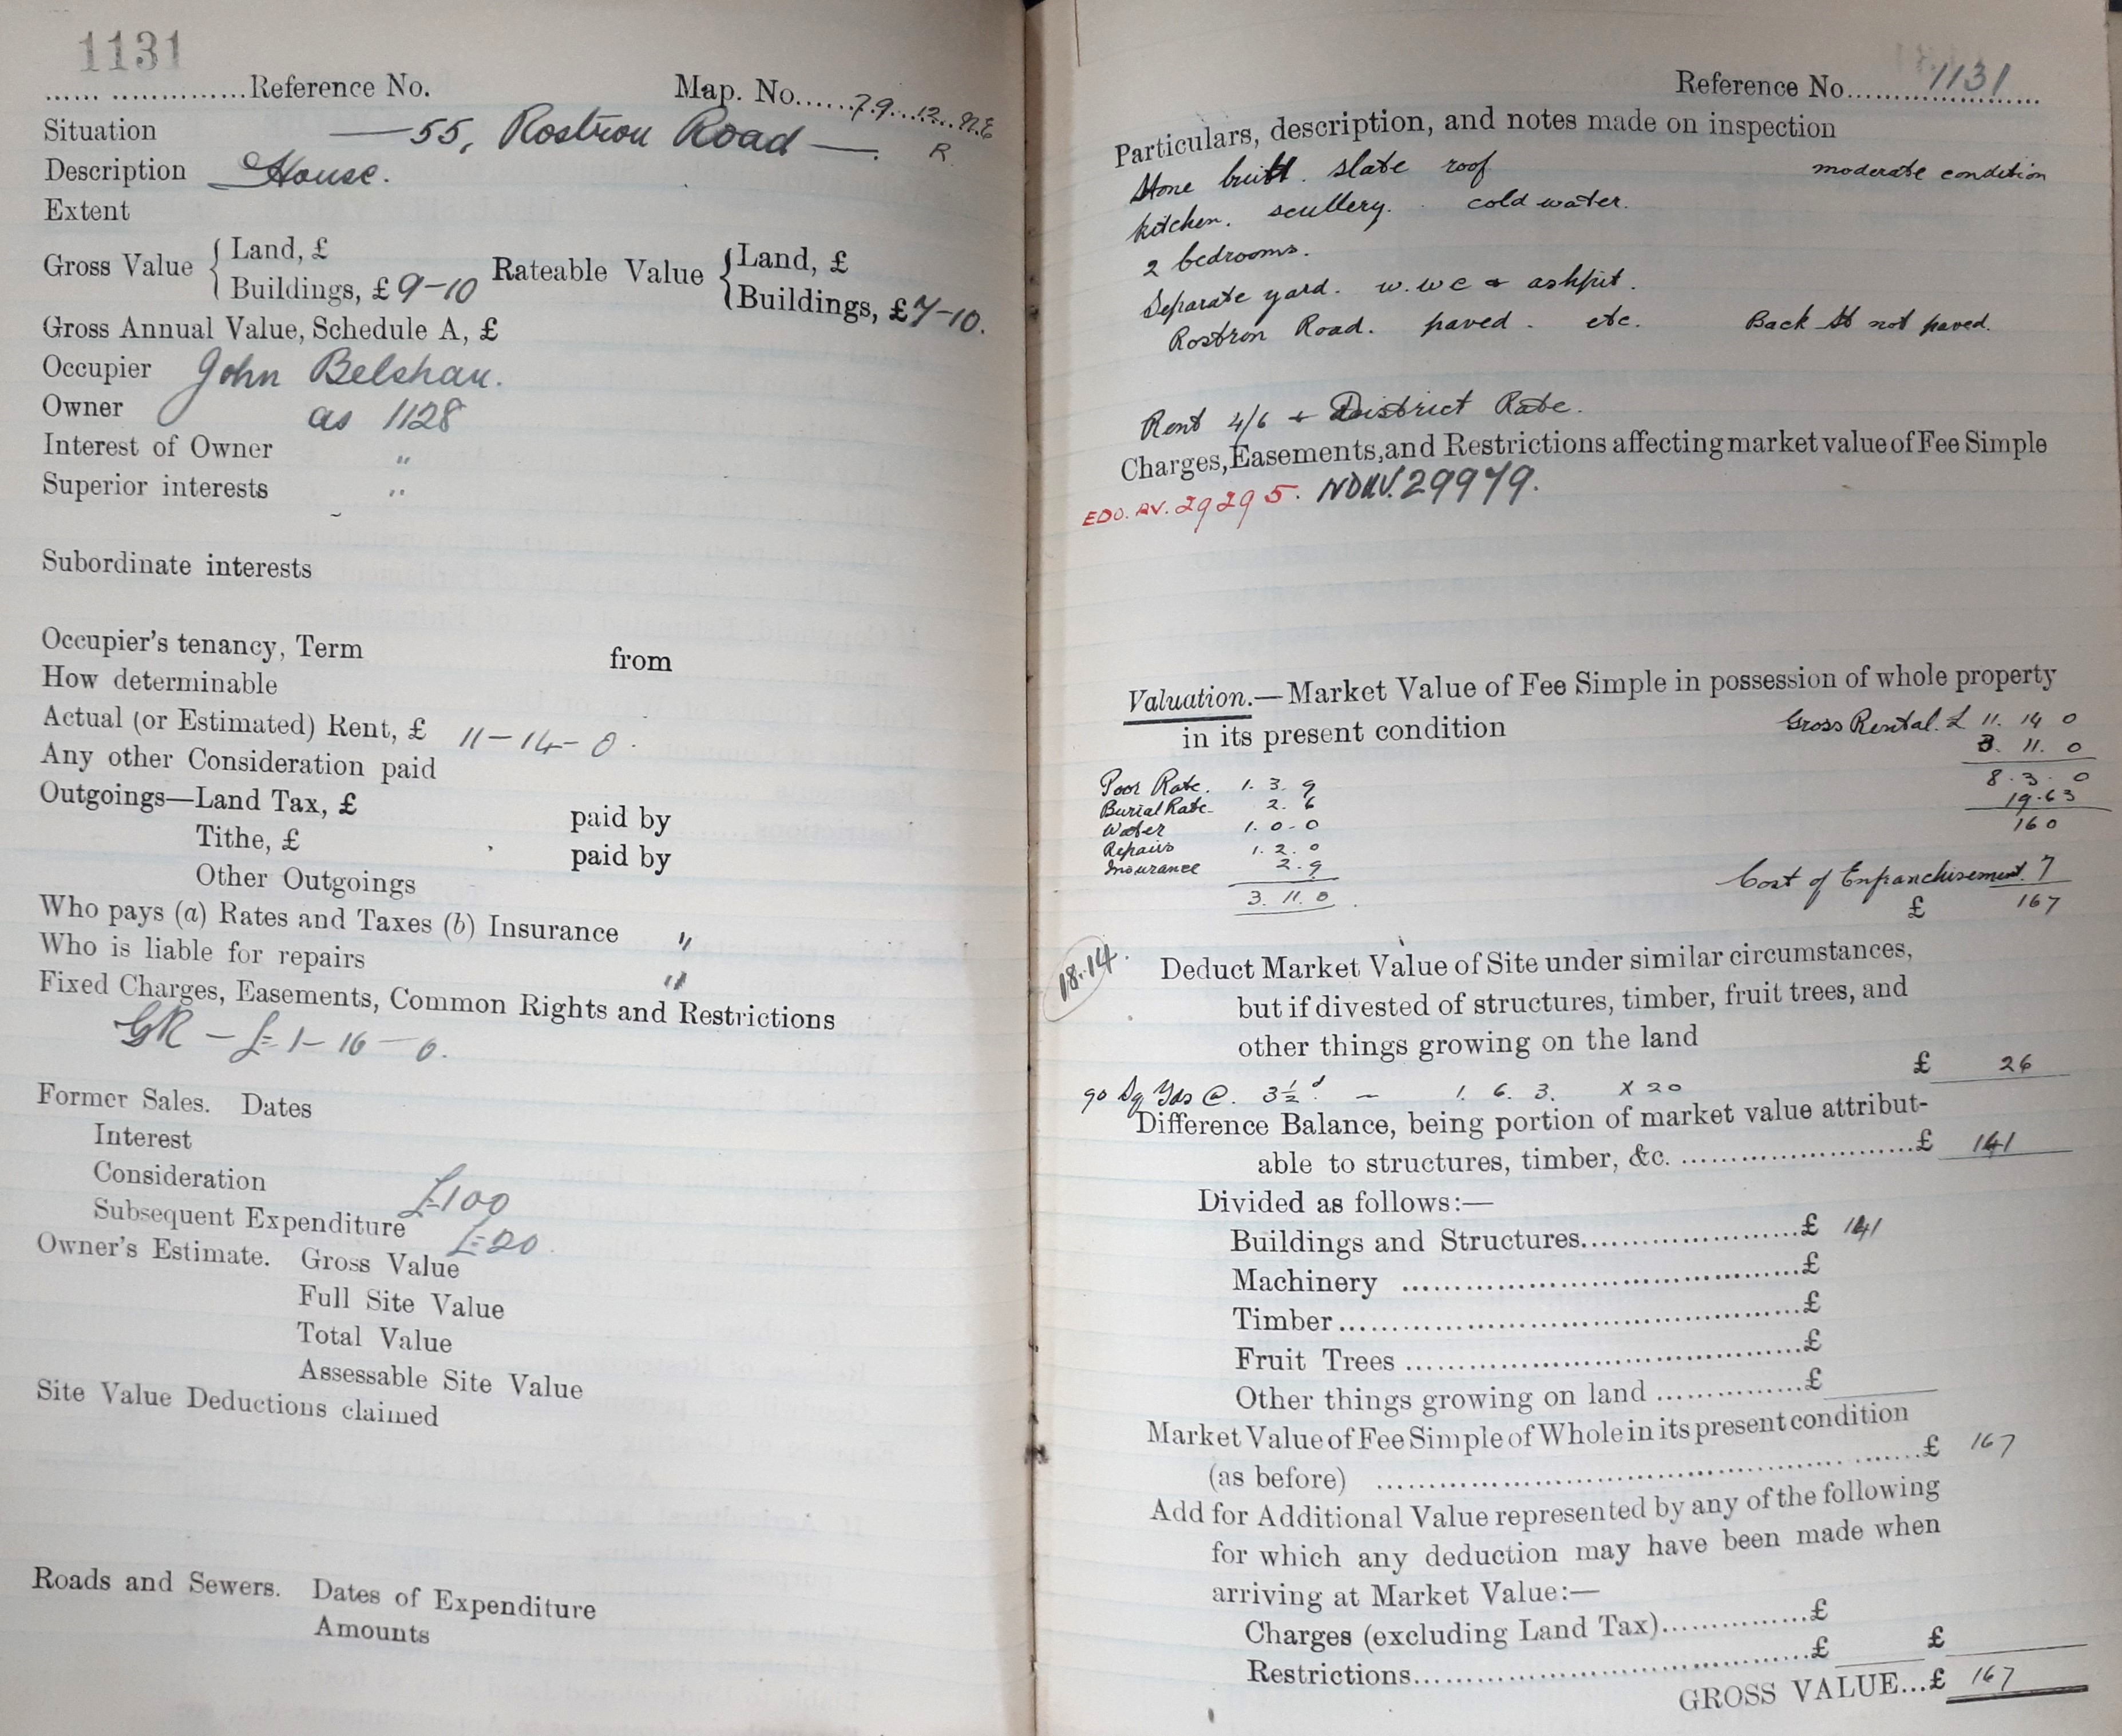 1131
...... ...............Reference No. Map. No......79...12..N.E
R.
Situation —55, Rostron Road—.
Description House.
Extent
Gross Value { Land, £ Rateable Value { Land, £
Buildings, £ 9-10 Buildings, £7-10.
Gross Annual Value, Schedule A, £
Occupier John Belshaw.
Owner as 1128
Interest of Owner "
Superior interests "
Subordinate interests
Occupier's tenancy, Term from
How determinable
Actual (or Estimated) Rent, £ 11-14-0.
Any other Consideration paid
Outgoings—Land Tax, £ paid by
Tithe, £ paid by
Other Outgoings
Who pays (a) Rates and Taxes (b) Insurance "
Who is liable for repairs "
Fixed Charges, Easements, Common Rights and Restrictions
GR - £1-16-0.
Former Sales. Dates
Interest
Consideration £100
Subsequent Expenditure £20
Owner's Estimate. Gross Value
Full Site Value
Total Value
Assessable Site Value
Site Value Deductions claimed
Roads and Sewers. Dates of Expenditure
Amounts
Reference No. 1131
Particulars, description, and notes made on inspection
Stone built. slate roof moderate condition
kitchen. scullery. cold water.
2 bedrooms.
Separate yard. w.wc & ashpit.
Rostron Road. paved. etc. Back St not paved.
Rent 4/6 + District Rate.
Charges, Easements, and Restrictions affecting market value of Fee Simple
EDO. AV. 29295. NDUV. 29979.
Valuation.—Market Value of Fee Simple in possession of whole property
in its present condition Gross Rental. £ 11. 14 0
3. 11. 0
Poor Rate. 1. 3. 9 8. 3. 0
Burial Rate 2. 6 19.63
Water 1. 0. 0 160
Repairs 1. 2. 0
Insurance 2. 9 Cost of Enfranchisement. 7
3. 11. 0. £ 167
18.14.
Deduct Market Value of Site under similar circumstances,
but if divested of structures, timber, fruit trees, and
other things growing on the land £ 26
90 Sq Yds @. 3½d. — 1. 6. 3. X 20
Difference Balance, being portion of market value attribut-
able to structures, timber, &c. ........................£ 141
Divided as follows:—
Buildings and Structures........................£ 141
Machinery ........................................£
Timber..............................................£
Fruit Trees .......................................£
Other things growing on land ...............£
Market Value of Fee Simple of Whole in its present condition
(as before) ........................................................£ 167
Add for Additional Value represented by any of the following
for which any deduction may have been made when
arriving at Market Value:—
Charges (excluding Land Tax)...............£
Restrictions........................................£ £
GROSS VALUE...£ 167